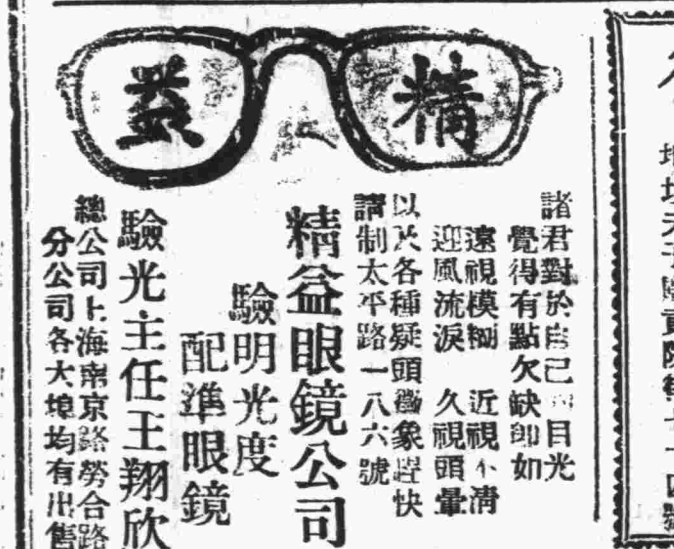 精益
諸君對於自己 目光
覺得有點欠缺即如
遠視模糊 近視不清
迎風流淚 久視頭暈
以及各種疑頭 象趕快
請制太平路一八六號
精益眼鏡公司
驗明光度
配準眼鏡
驗光主任王翔欣
總公司上海南京路勞合路
分公司各大埠均有出售